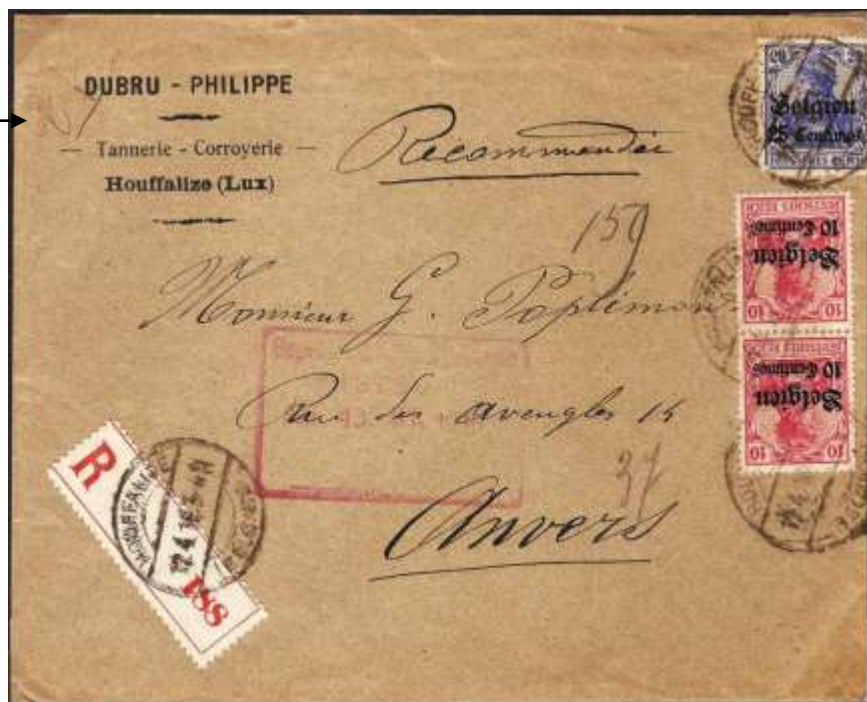 DUBRU - PHILIPPE
Tannerie - Corroyerie
Houffalize (Lux)
Recommandée
159
Monsieur G. Poplimon
Rue des aveugles 14
37
Anvers
R
188
HOUFFALIZE
12.4.16
Belgien
25 Centimes
Belgien
10 Centimes
DEUTSCHES REICH
10 10
Belgien
10 Centimes
10 10